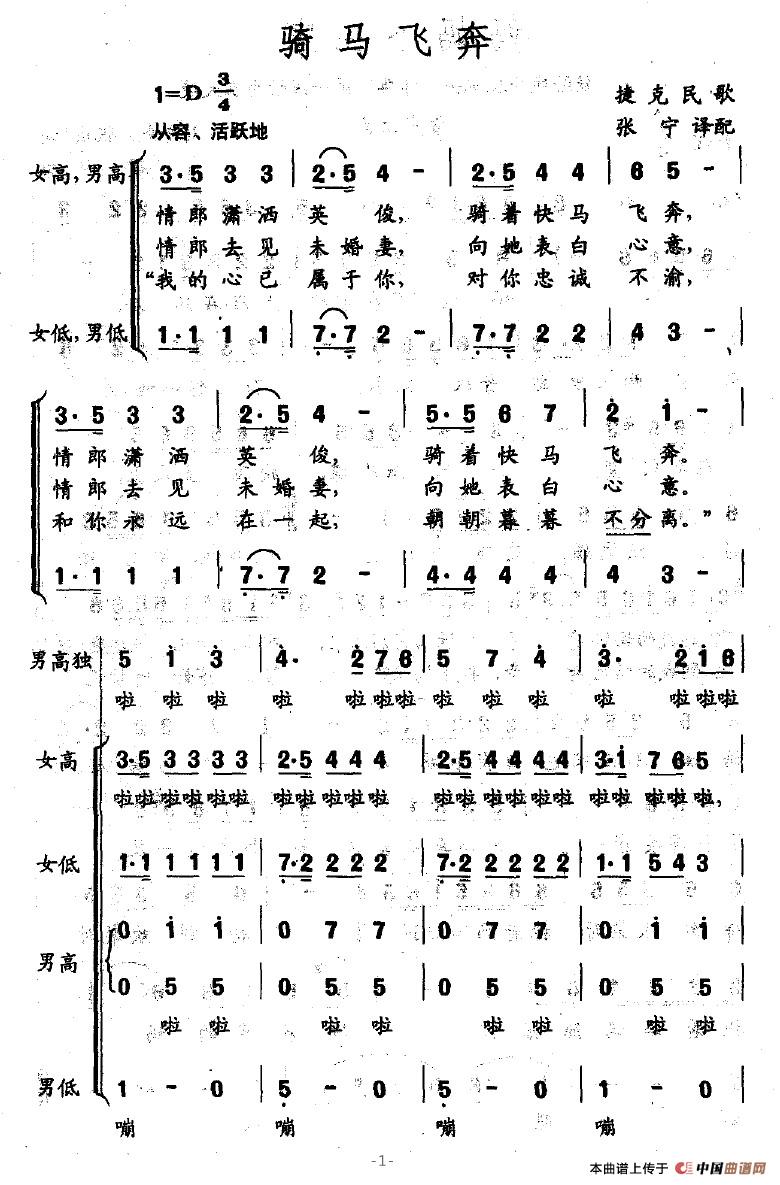 骑马飞奔
1=D 3/4
捷克民歌
从容、活跃地
张宁译配
女高,男高 3·5 3 3 | 2·5 4 - | 2·5 4 4 | 6 5 -
情郎潇洒英俊, 骑着快马飞奔,
情郎去见未婚妻, 向她表白心意,
“我的心已属于你, 对你忠诚不渝,
女低,男低 1·1 1 1 | 7·7 2 - | 7·7 2 2 | 4 3 -
3·5 3 3 | 2·5 4 - | 5·5 6 7 | 2 1 -
情郎潇洒英俊, 骑着快马飞奔。
情郎去见未婚妻, 向她表白心意。
和你永远在一起, 朝朝暮暮不分离。”
1·1 1 1 | 7·7 2 - | 4·4 4 4 | 4 3 -
男高独 5 1 3 | 4· 2 7 6 | 5 7 4 | 3· 2 1 6
啦 啦 啦 啦 啦 啦啦 啦 啦 啦 啦 啦 啦啦
女高 3·5 3 3 3 3 | 2·5 4 4 4 | 2·5 4 4 4 4 | 3·1 7 6 5
啦啦 啦啦 啦啦 啦啦 啦啦 啦 啦啦 啦啦 啦啦 啦啦 啦啦 啦,
女低 1·1 1 1 1 1 | 7·2 2 2 2 | 7·2 2 2 2 2 | 1·1 5 4 3
0 1 1 | 0 7 7 | 0 7 7 | 0 1 1
男高
0 5 5 | 0 5 5 | 0 5 5 | 0 5 5
啦 啦 啦 啦 啦 啦 啦 啦
男低 1 - 0 | 5 - 0 | 5 - 0 | 1 - 0
嘣 嘣 嘣 嘣
-1-
本曲谱上传于 中国曲谱网